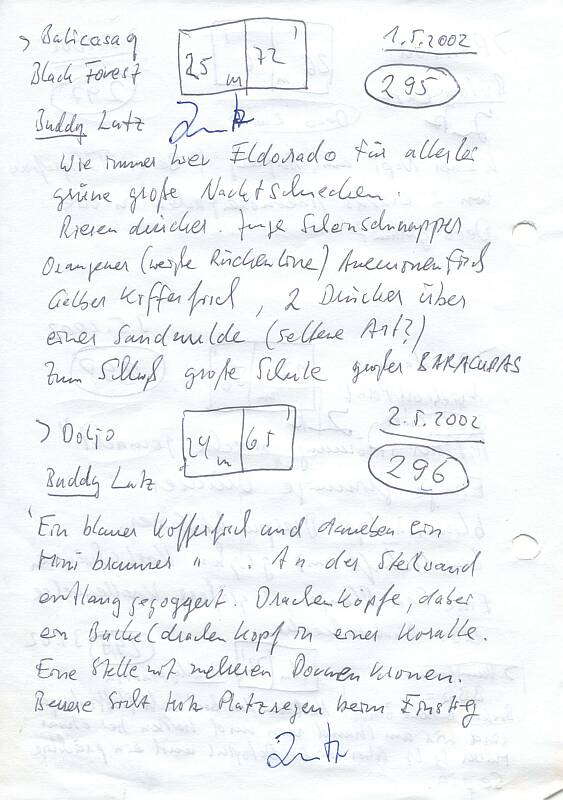 > Balicasag 25 m 72' 1.5.2002
Black Forest 295
Buddy Lutz Lutz
Wie immer hier Eldorado für allerlei
grüne große Nacktschnecken.
Riesen drücker. Junge Schnapper
Orangener (weiße Rückenlinie) Anemonenfisch
Gelber Kofferfisch, 2 Drücker über
einer Sandmulde (seltene Art?)
Zum Schluß große Schule großer BARACUDAS
> Doljo 24 m 65' 2.5.2002
Buddy Lutz 296
Ein blauer Kofferfisch und daneben ein
Mini brauner " . An der Steilwand
entlang gejoggert. Drachenköpfe, dabei
ein Buckeldrachenkopf in einer Koralle.
Eine Stelle mit mehreren Dornenkronen.
Bessere Sicht trotz Platzregen beim Einstieg
Lutz